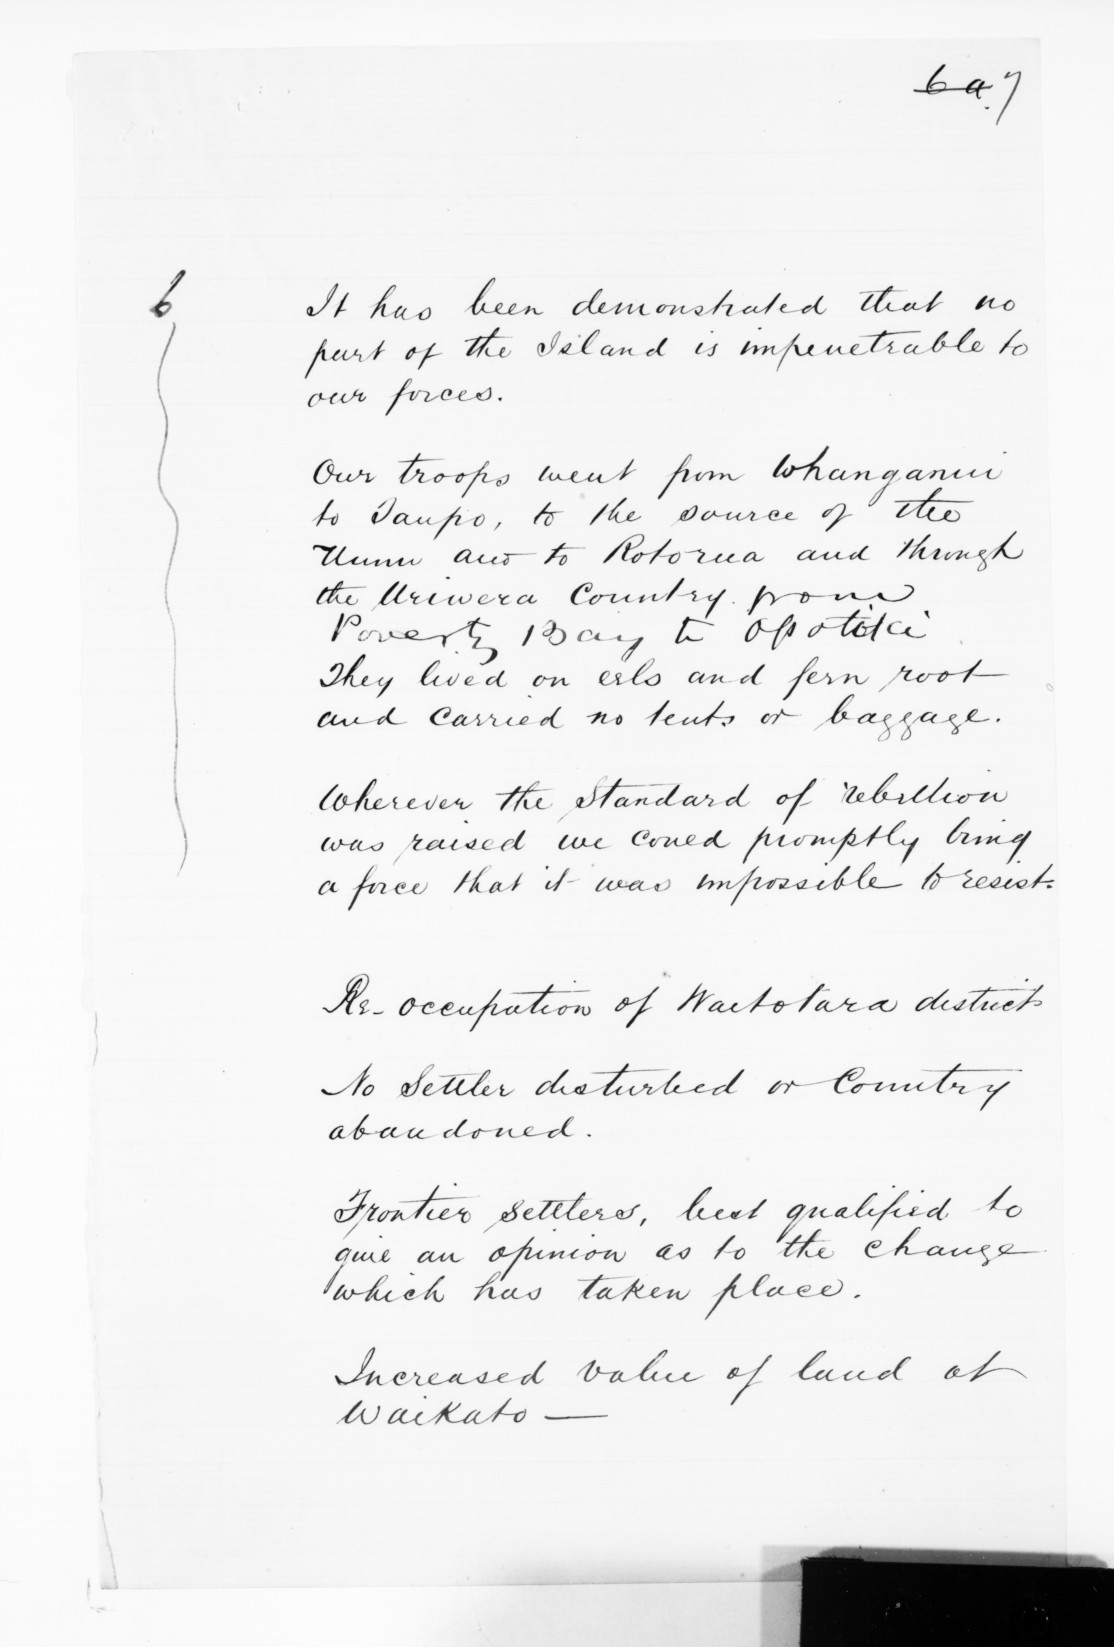 6a. 7
6
It has been demonstrated that no
part of the Island is impenetrable to
our forces.
Our troops went from Whanganui
to Taupo, to the source of the
and to Rotorua and through
the Uriwera Country. from
Poverty Bay to Opotiki
They lived on eels and fern root
and carried no tents or baggage.
Wherever the Standard of rebellion
was raised we could promptly bring
a force that it was impossible to resist.
Re-occupation of Waitotara district
No Settler disturbed or Country
abandoned.
Frontier settlers, best qualified to
give an opinion as to the change
which has taken place.
Increased value of land at
Waikato —